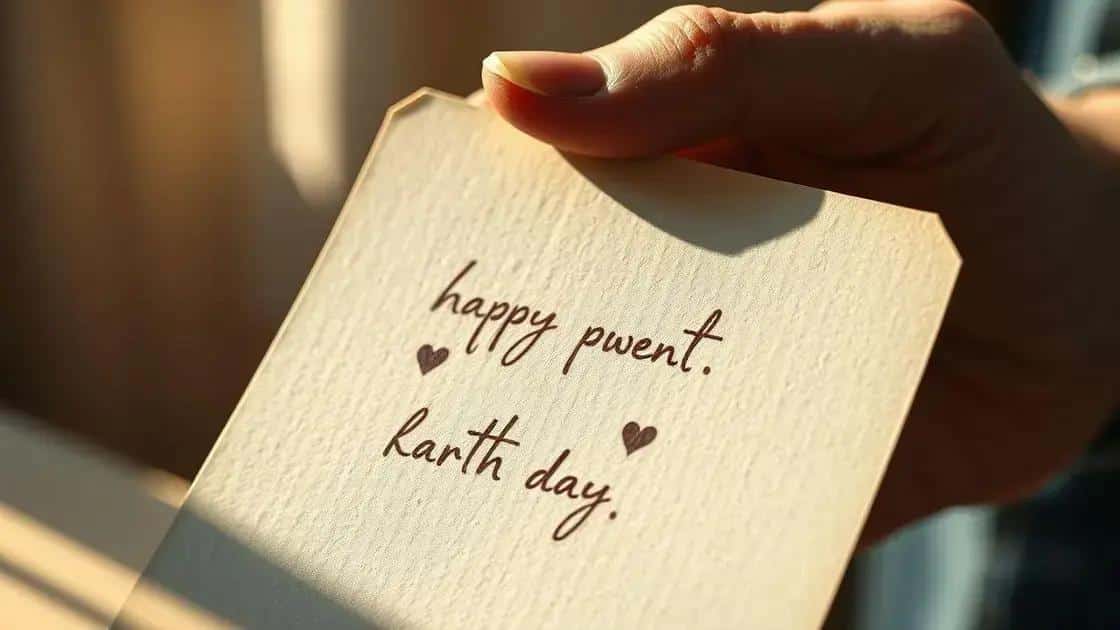 happy pwent.
karth day.